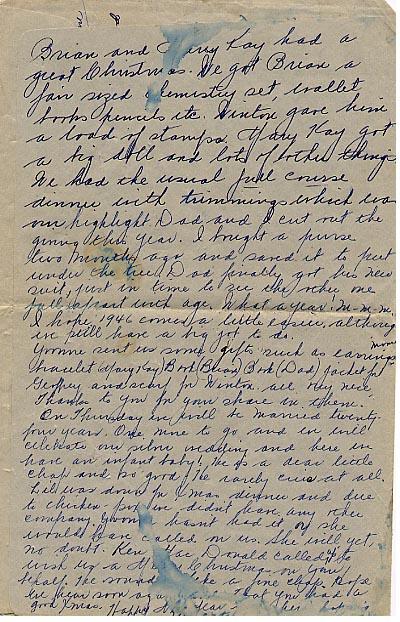 Brian and Mary Kay had a
great Christmas. We got Brian a
fair sized chemistry set, wallet
books pencils etc. Winton gave him
a load of stamps. Mary Kay got
a big doll and lots of other things
We had the usual full course
dinner with trimmings which was
our highlight. Dad and I cut out the
giving this year. I bought a purse
two months ago and saved it to put
under the tree. Dad finally got his new
suit, just in time to see the other one
fall apart with age. What a year! m-m-m.
I hope 1946 comes a little easier, although
we still have a big job to do.
Yvonne sent us some gifts such as earrings
bracelet (Mary Kay) Book (Brian) Book (Dad) jacket for
Geoffrey and scarf for Winton. all very nice,
Thanks to you for your share in them.
On Thursday we will be married twenty-
four years. One more to go and we will
celebrate our silver wedding and here we
have an infant baby! He is a dear little
chap and so good. He rarely cries at all.
was down for X-mas dinner and due
to chicken-pox we didn't have any other
company. Yvonne hasn't had it or she
would have called on us. She will yet,
no doubt. Ken Mac Donald called to
wish us a Merry Christmas on your
behalf. He sounds like a fine chap. Hope
we hear soon again that you had a
good Xmas. Happy New Year